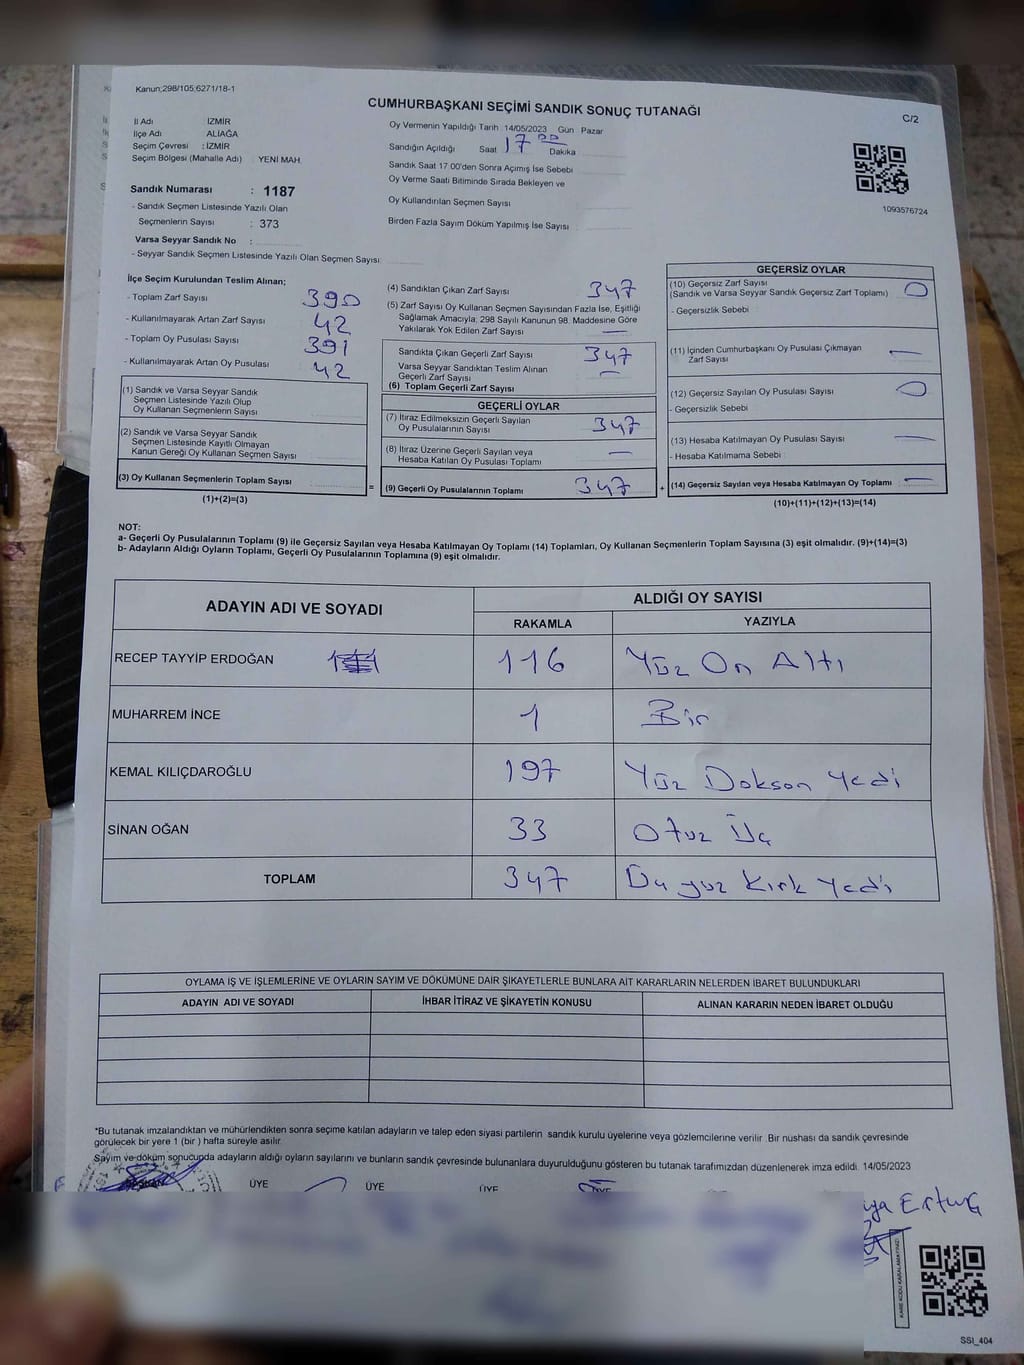 Kanun;298/105;6271/18-1
CUMHURBAŞKANI SEÇİMİ SANDIK SONUÇ TUTANAĞI
C/2
İl Adı : İZMİR
İlçe Adı : ALİAĞA
Seçim Çevresi : İZMİR
Seçim Bölgesi (Mahalle Adı) : YENİ MAH.
Sandık Numarası : 1187
- Sandık Seçmen Listesinde Yazılı Olan
Seçmenlerin Sayısı : 373
Varsa Seyyar Sandık No :
- Seyyar Sandık Seçmen Listesinde Yazılı Olan Seçmen Sayısı:
Oy Vermenin Yapıldığı Tarih 14/05/2023 Gün Pazar
Sandığın Açıldığı Saat 17 00 Dakika
Sandık Saat 17.00'den Sonra Açımış İse Sebebi
Oy Verme Saati Bitiminde Sırada Bekleyen ve
Oy Kullandırılan Seçmen Sayısı
Birden Fazla Sayım Döküm Yapılmış İse Sayısı
1093576724
İlçe Seçim Kurulundan Teslim Alınan;
- Toplam Zarf Sayısı 390
- Kullanılmayarak Artan Zarf Sayısı 42
- Toplam Oy Pusulası Sayısı 391
- Kullanılmayarak Artan Oy Pusulası 42
(1) Sandık ve Varsa Seyyar Sandık
Seçmen Listesinde Yazılı Olup
Oy Kullanan Seçmenlerin Sayısı
(2) Sandık ve Varsa Seyyar Sandık
Seçmen Listesinde Kayıtlı Olmayan
Kanun Gereği Oy Kullanan Seçmen Sayısı
(3) Oy Kullanan Seçmenlerin Toplam Sayısı
(1)+(2)=(3)
(4) Sandıktan Çıkan Zarf Sayısı 347
(5) Zarf Sayısı Oy Kullanan Seçmen Sayısından Fazla İse, Eşitliği
Sağlamak Amacıyla; 298 Sayılı Kanunun 98. Maddesine Göre
Yakılarak Yok Edilen Zarf Sayısı —
Sandıkta Çıkan Geçerli Zarf Sayısı 347
Varsa Seyyar Sandıktan Teslim Alınan
Geçerli Zarf Sayısı —
(6) Toplam Geçerli Zarf Sayısı
GEÇERLİ OYLAR
(7) İtiraz Edilmeksizin Geçerli Sayılan
Oy Pusulalarının Sayısı 347
(8) İtiraz Üzerine Geçerli Sayılan veya
Hesaba Katılan Oy Pusulası Toplamı —
= (9) Geçerli Oy Pusulalarının Toplamı 347 +
GEÇERSİZ OYLAR
(10) Geçersiz Zarf Sayısı
(Sandık ve Varsa Seyyar Sandık Geçersiz Zarf Toplamı) 0
- Geçersizlik Sebebi
(11) İçinden Cumhurbaşkanı Oy Pusulası Çıkmayan
Zarf Sayısı —
(12) Geçersiz Sayılan Oy Pusulası Sayısı 0
- Geçersizlik Sebebi
(13) Hesaba Katılmayan Oy Pusulası Sayısı —
- Hesaba Katılmama Sebebi
(14) Geçersiz Sayılan veya Hesaba Katılmayan Oy Toplamı : —
(10)+(11)+(12)+(13)=(14)
NOT:
a- Geçerli Oy Pusulalarının Toplamı (9) ile Geçersiz Sayılan veya Hesaba Katılmayan Oy Toplamı (14) Toplamları, Oy Kullanan Seçmenlerin Toplam Sayısına (3) eşit olmalıdır. (9)+(14)=(3)
b- Adayların Aldığı Oyların Toplamı, Geçerli Oy Pusulalarının Toplamına (9) eşit olmalıdır.
ADAYIN ADI VE SOYADI
ALDIĞI OY SAYISI
RAKAMLA YAZIYLA
RECEP TAYYİP ERDOĞAN 116 Yüz On Altı
MUHARREM İNCE 1 Bir
KEMAL KILIÇDAROĞLU 197 Yüz Doksan Yedi
SİNAN OĞAN 33 Otuz Üç
TOPLAM 347 Üç yüz Kırk Yedi
OYLAMA İŞ VE İŞLEMLERİNE VE OYLARIN SAYIM VE DÖKÜMÜNE DAİR ŞİKAYETLERLE BUNLARA AİT KARARLARIN NELERDEN İBARET BULUNDUKLARI
ADAYIN ADI VE SOYADI İHBAR İTİRAZ VE ŞİKAYETİN KONUSU ALINAN KARARIN NEDEN İBARET OLDUĞU
*Bu tutanak imzalandıktan ve mühürlendikten sonra seçime katılan adayların ve talep eden siyasi partilerin sandık kurulu üyelerine veya gözlemcilerine verilir .Bir nushası da sandık çevresinde
görülecek bir yere 1 (bir ) hafta süreyle asılır.
Sayım ve döküm sonucunda adayların aldığı oyların sayılarını ve bunların sandık çevresinde bulunanlara duyurulduğunu gösteren bu tutanak tarafımızdan düzenlenerek imza edildi. 14/05/2023
BAŞKAN ÜYE ÜYE ÜYE ÜYE
KARE KODU KARALAMAYINIZ!
SSI_404